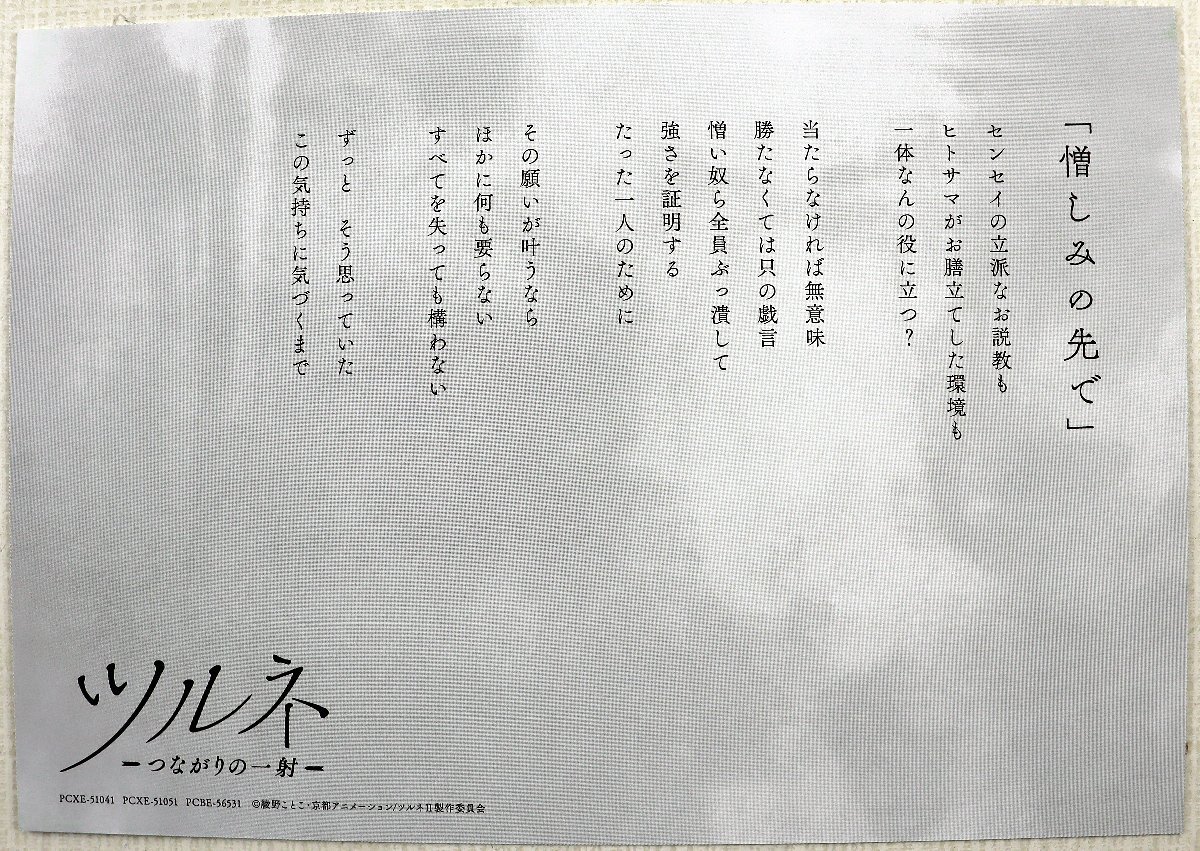 「憎しみの先で」
センセイの立派なお説教も
ヒトサマがお膳立てした環境も
一体なんの役に立つ？
当たらなければ無意味
勝たなくては只の戯言
憎い奴ら全員ぶっ潰して
強さを証明する
たった一人のために
その願いが叶うなら
ほかに何も要らない
すべてを失っても構わない
ずっと　そう思っていた
この気持ちに気づくまで
ツルネ
ーつながりの一射ー
PCXE-51041 PCXE-51051 PCBE-56531 ©綾野ことこ・京都アニメーション/ツルネⅡ製作委員会